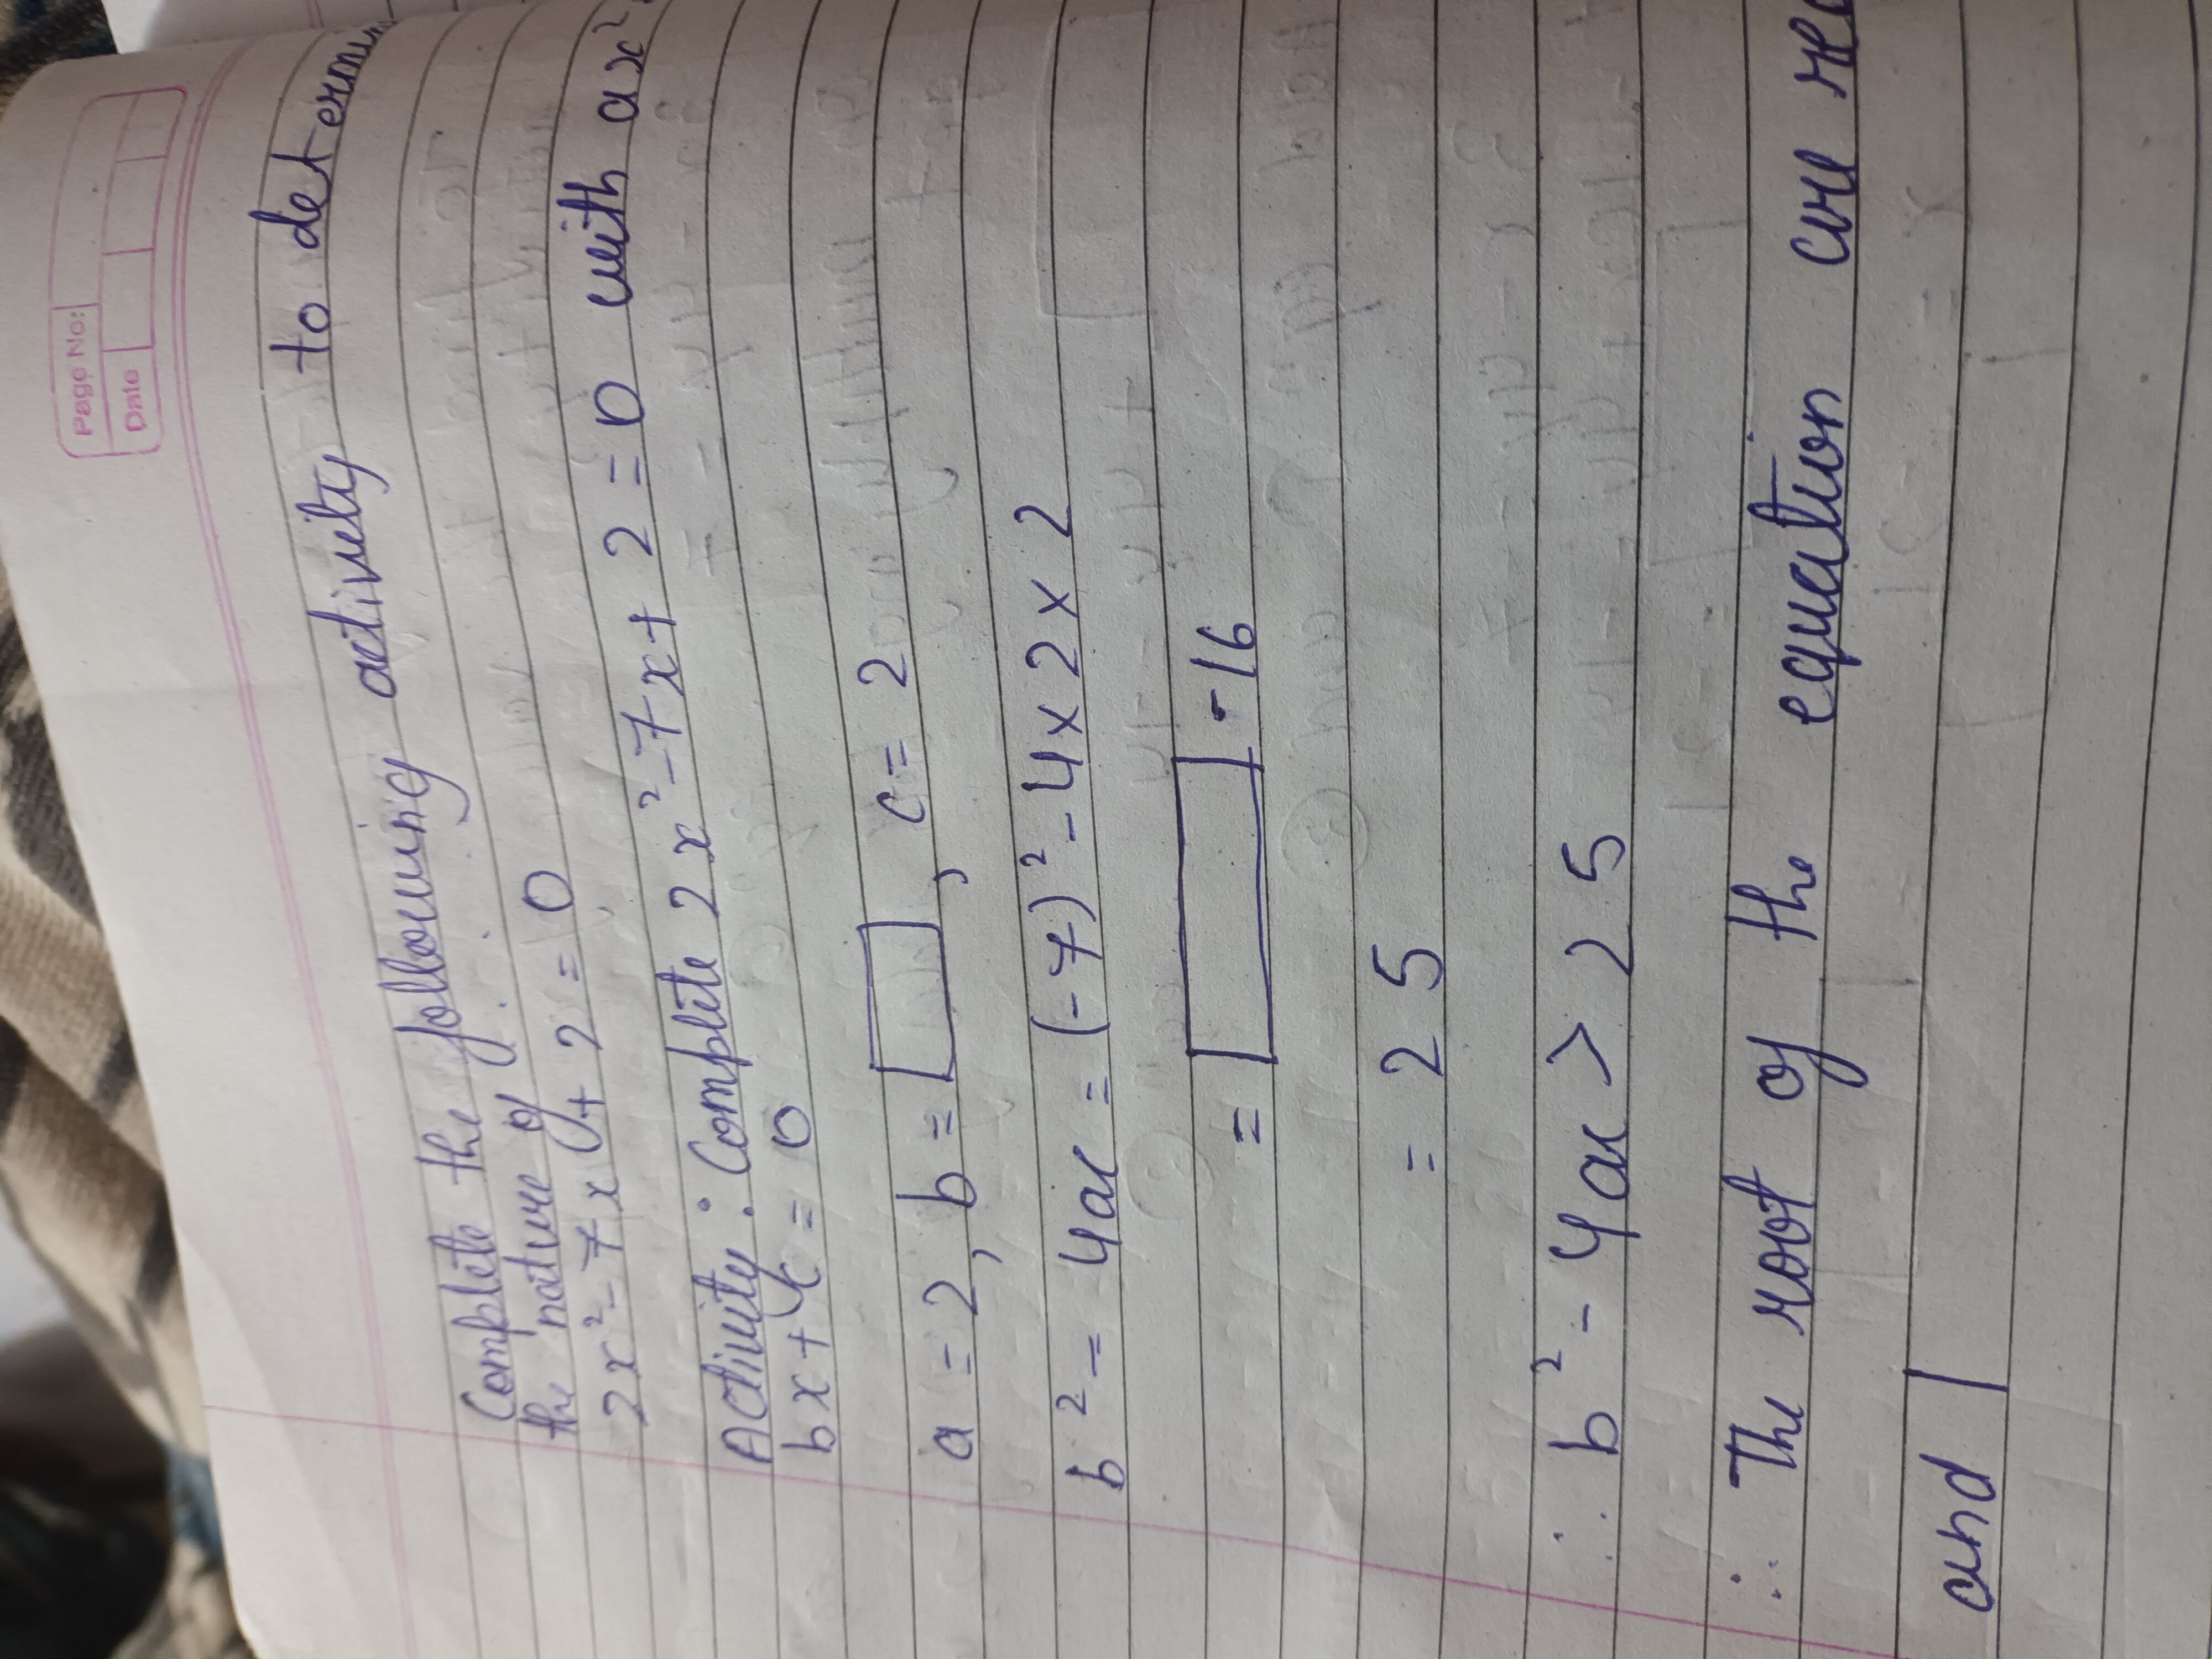 Page No:
Date
Complete the following activity to determi
the nature of
2x² - 7x + 2 = 0
Activity : Complete 2x² - 7x + 2 = 0 with ax²
bx + c = 0
a = 2, b = , c = 2
b² - 4ac = (-7)² - 4 x 2 x 2
= - 16
= 2 5
∴ b² - 4ac > 25
∴ The root of the equation are rea
and